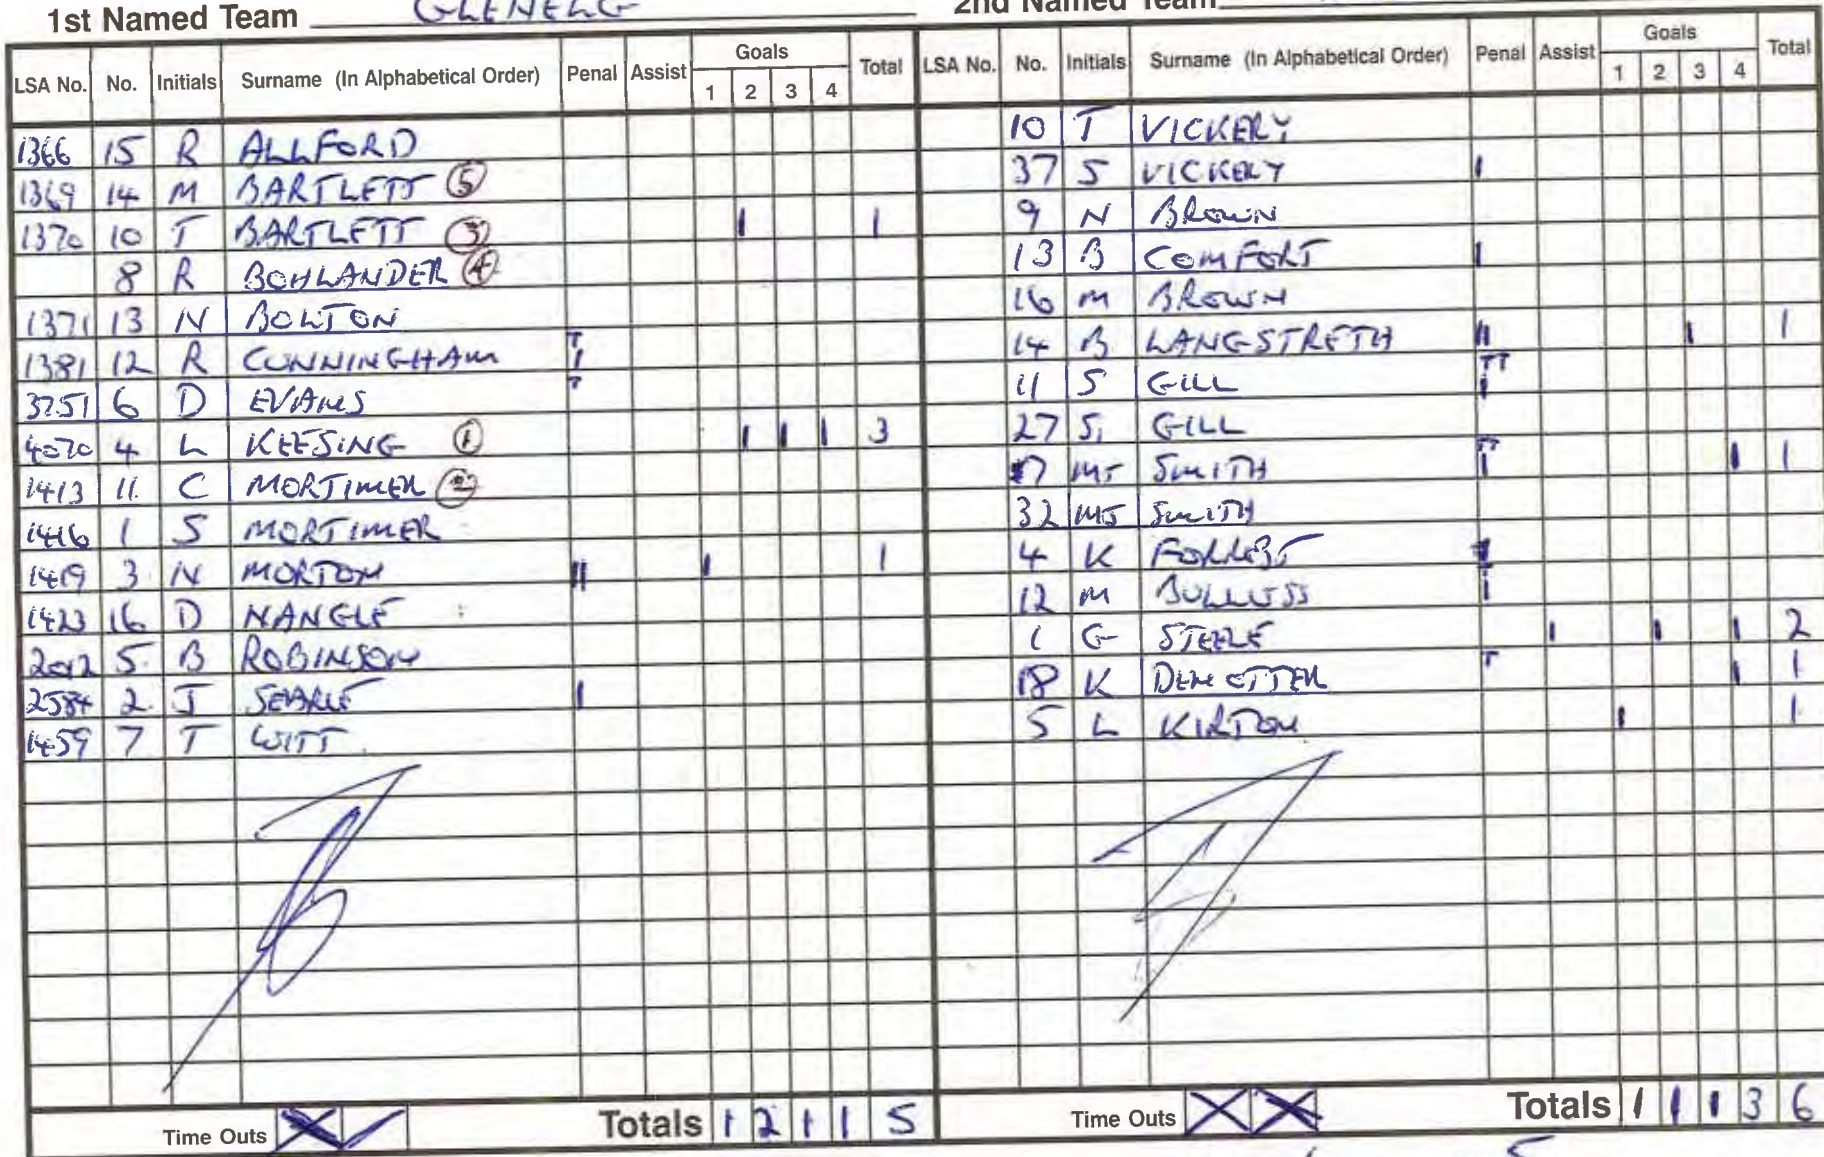 1st Named Team GLENELG
LSA No. No. Initials Surname (In Alphabetical Order) Penal Assist Goals 1 2 3 4 Total
1366 15 R ALLFORD
1369 14 M BARTLETT 5
1370 10 T BARTLETT 3 I 1
8 R BOHLANDER 4
1371 13 N BOLTON
1381 12 R CUNNINGHAM T I
3751 6 D EVANS T
4070 4 L KEESING 1 I I I 3
1413 11. C MORTIMER 2
1416 1 S MORTIMER
1419 3 N MORTON II I 1
1423 16 D NANGLE
2012 5. B ROBINSON
2584 2. J SEARLE I
1459 7 T WITT
Time Outs X Totals 1 2 1 1 5
2nd Named Team
LSA No. No. Initials Surname (In Alphabetical Order) Penal Assist Goals 1 2 3 4 Total
10 T VICKERY
37 S VICKERY I
9 N BROWN
13 B COMFORT I
16 M BROWN
14 B LANGSTRETH II I 1
11 S GILL TT I
27 S, GILL
7 MJ SMITH TT I I 1
32 MJ SMITH
4 K FORREST
12 M BULLUSS I
1 G STEELE I I I 2
18 K DEN OTTER T I 1
5 L KIRTON I 1
Time Outs X X Totals 1 1 1 3 6